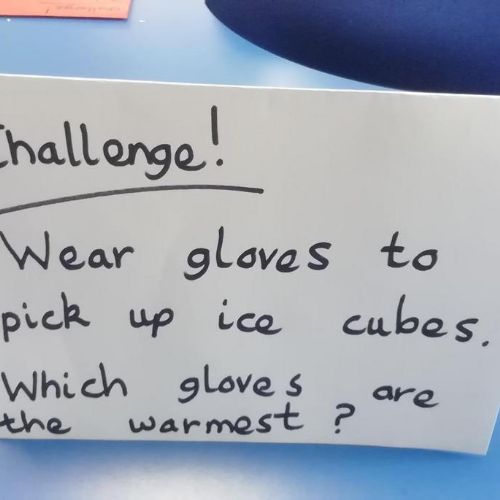 Challenge!
Wear gloves to
pick up ice cubes.
Which gloves are
the warmest?